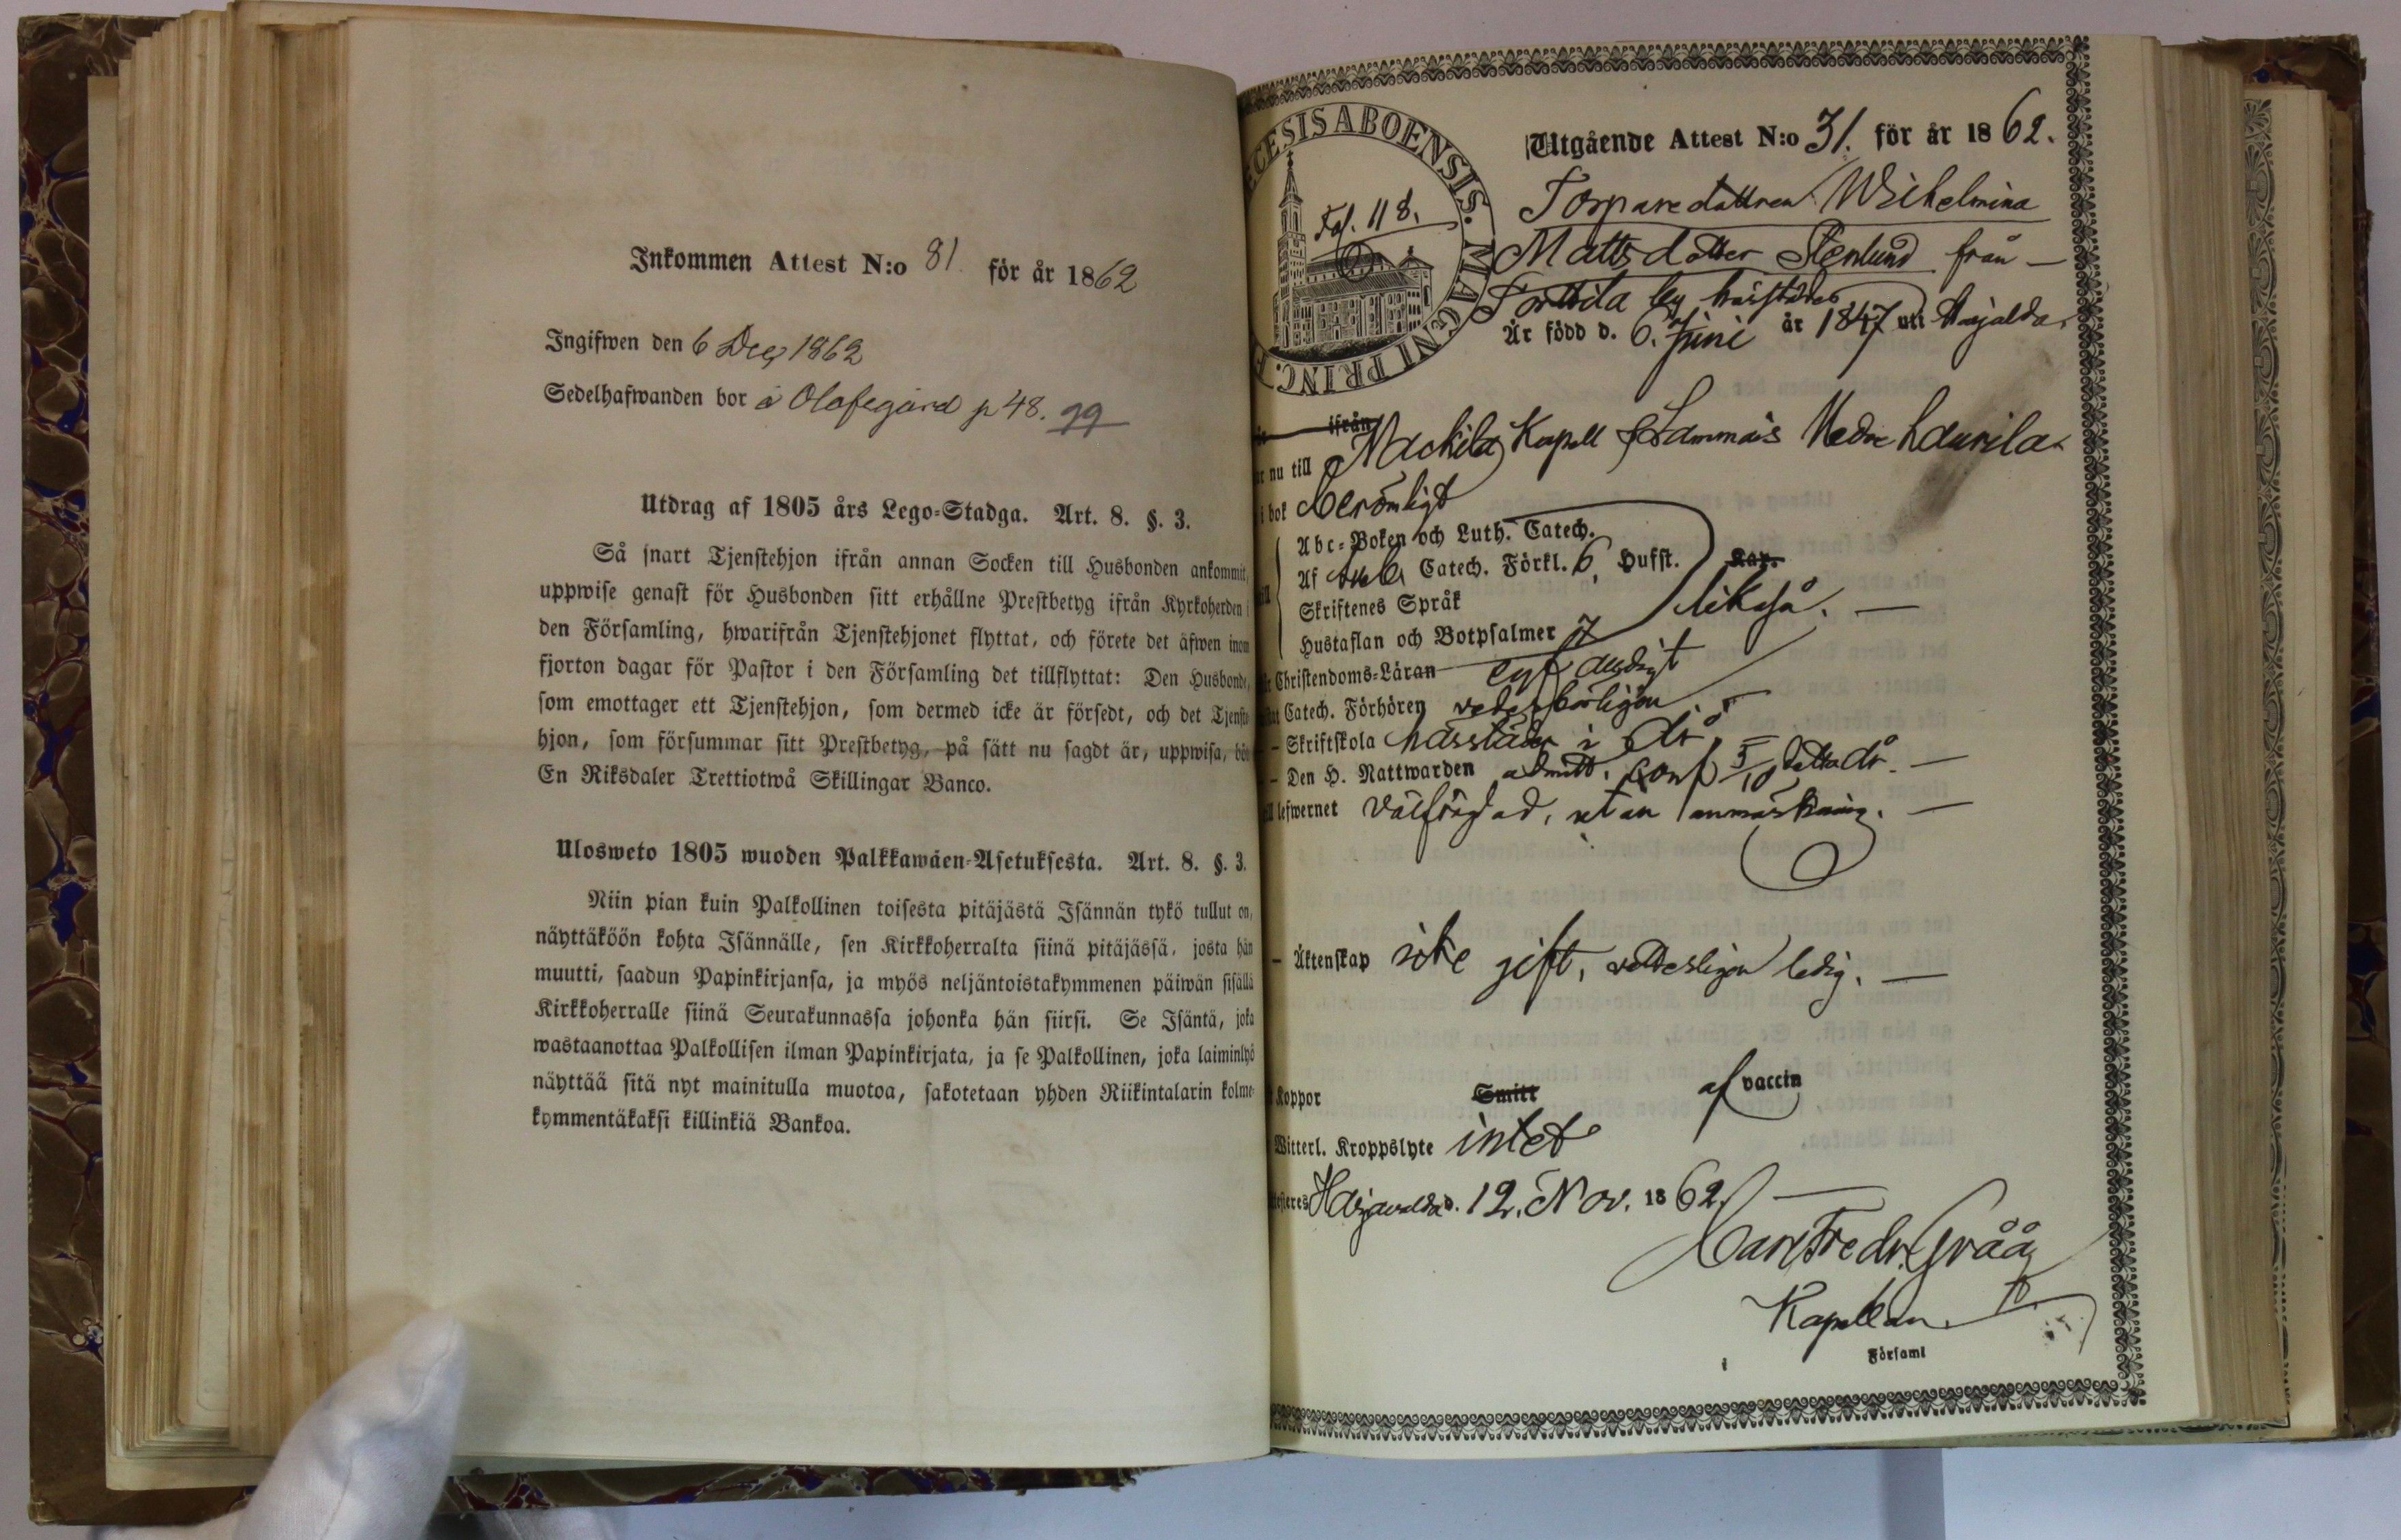 Inkommen Attest N:o 81 för år 1862
Ingifwen den 6 Dec 1862
Sedelhafwanden bor å Olofsgård p 48. 99
Utdrag af 1805 års Lego-Stadga. Art. 8. §. 3.
Så snart Tjenstehjon ifrån annan Socken till Husbonden ankommit,
uppwise genast för Husbonden sitt erhållne Prestbetyg ifrån Kyrkoherden i
den Församling, hwarifrån Tjenstehjonet flyttat, och förete det äfwen inom
fjorton dagar för Pastor i den Församling det tillflyttat: Den Husbonde,
som emottager ett Tjenstehjon, som dermed icke är försedt, och det Tjenste-
hjon, som försummar sitt Prestbetyg, på sätt nu sagdt är, uppwisa, bö
En Riksdaler Trettiotwå Skillingar Banco.
Ulosweto 1805 wuoden Palkkawäen-Asetuksesta. Art. 8. §. 3.
Niin pian kuin Palkollinen toisesta pitäjästä Isännän tykö tullut on,
näyttäköön kohta Isännälle, sen Kirkkoherralta siinä pitäjässä, josta hän
muutti, saadun Papinkirjansa, ja myös neljäntoistakymmenen päiwän sisällä
Kirkkoherralle siinä Seurakunnassa johonka hän siirsi. Se Isäntä, joka
wastaanottaa Palkollisen ilman Papinkirjata, ja se Palkollinen, joka laiminlyö
näyttää sitä nyt mainitulla muotoa, sakotetaan yhden Riikintalarin kolme-
kymmentäkaksi killinkiä Bankoa.
ECESIS ABOENSIS. MAGNI PRINC. F
Fol. 118.
Utgående Attest N:o 31. för år 1862.
Torparedottren Wilhelmina
Mattsdotter Stenlund från
Torttila by härstädes
Är född d. 6. Juni år 1847 uti Harjavalda
ifrån
nu till Nackila Kapell f Lammais Nedre Laurila
i bok berömligt
Abc-Boken och Luth. Catech.
Af Catech. Förkl. 6 Hufst. Kap.
Skriftenes Språk likaså.
Hustaflan och Botpsalmer 7
Christendoms-Läran
Catech. Förhören vederbörligen
Skriftskola härstädes i år
Den H. Nattwarden admitt. conf 5/10 detta år.
lefwernet välfrejdad, utan anmärkning.
Äktenskap icke gift, ledig.
Koppor Smitt af vaccin
Witterl. Kroppslyte intet
Harjavalda d. 12. Nov. 1862
Carl Fredr. Gråå
Kapellan
i Församl